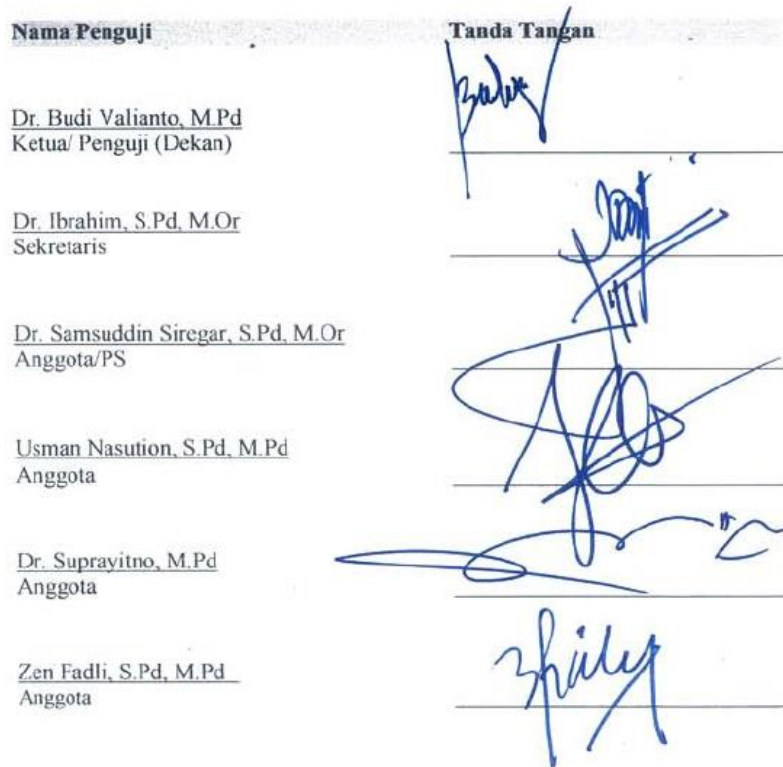 Nama Penguji Tanda Tangan
Dr. Budi Valianto, M.Pd
Ketua/ Penguji (Dekan)
Dr. Ibrahim, S.Pd, M.Or
Sekretaris
Dr. Samsuddin Siregar, S.Pd, M.Or
Anggota/PS
Usman Nasution, S.Pd, M.Pd
Anggota
Dr. Suprayitno, M.Pd
Anggota
Zen Fadli, S.Pd, M.Pd
Anggota